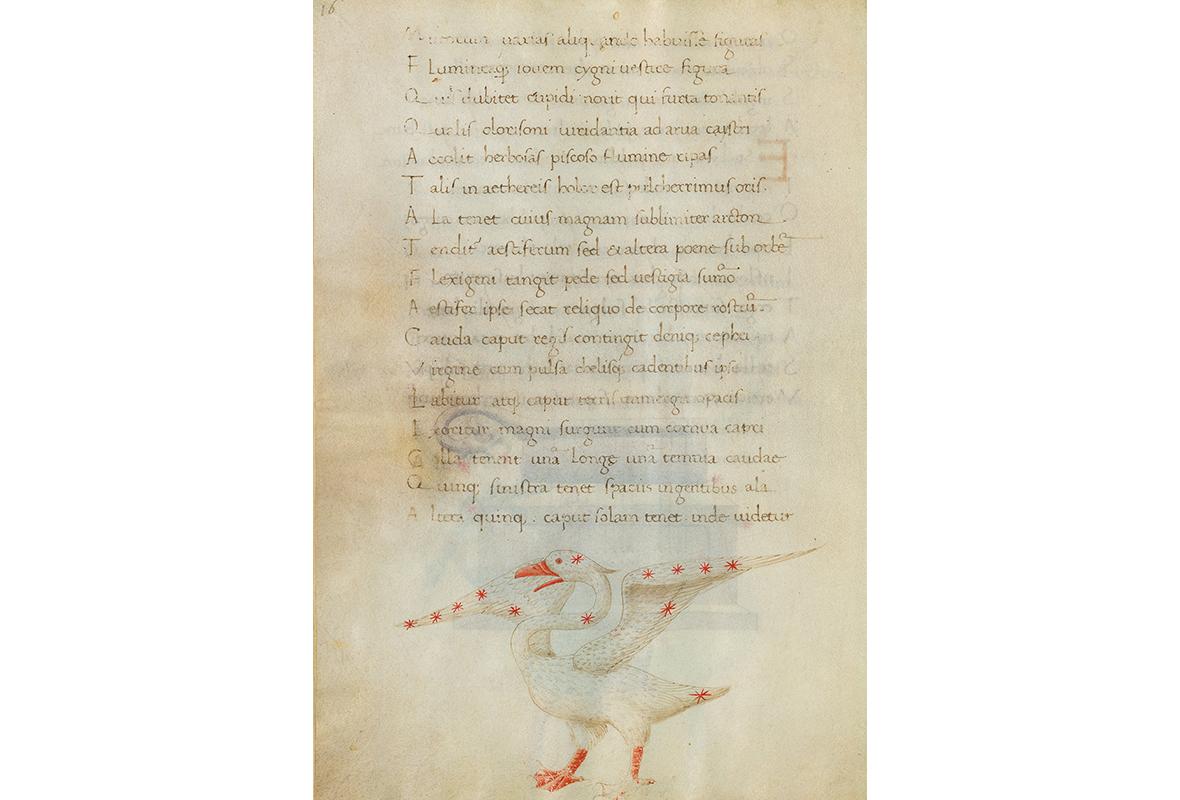 16
varias habuisse figuras
F Lumineaq; iouem cygni uestice figura
Q uis dubitet cupidi norit qui furta tonantis
Q ualis olorisoni uiridantia ad arua caystri
A ccolit herbosas piscoso flumine ripas
T alis in aethereis holor est pulcherrimus oris.
A La tenet cuius magnam sublimiter arcton
T endit aestiferum sed & altera poene sub orbē
F lexigeni tangit pede sed uestigia sum̄o
A estifer ipse secat reliquo de corpore rostrū.
C auda caput regis contingit deniq; cephei
V irgine cum pulsa chelisq; cadentibus ipse
L abitur atq; caput terris opacis
E xoritur magni surgunt cum cornua capri
C olla tenent unā longe unā tenuia caudae
Q uinq; sinistra tenet spaciis ingentibus ala
A ltera quinq. caput solam tenet inde uidetur